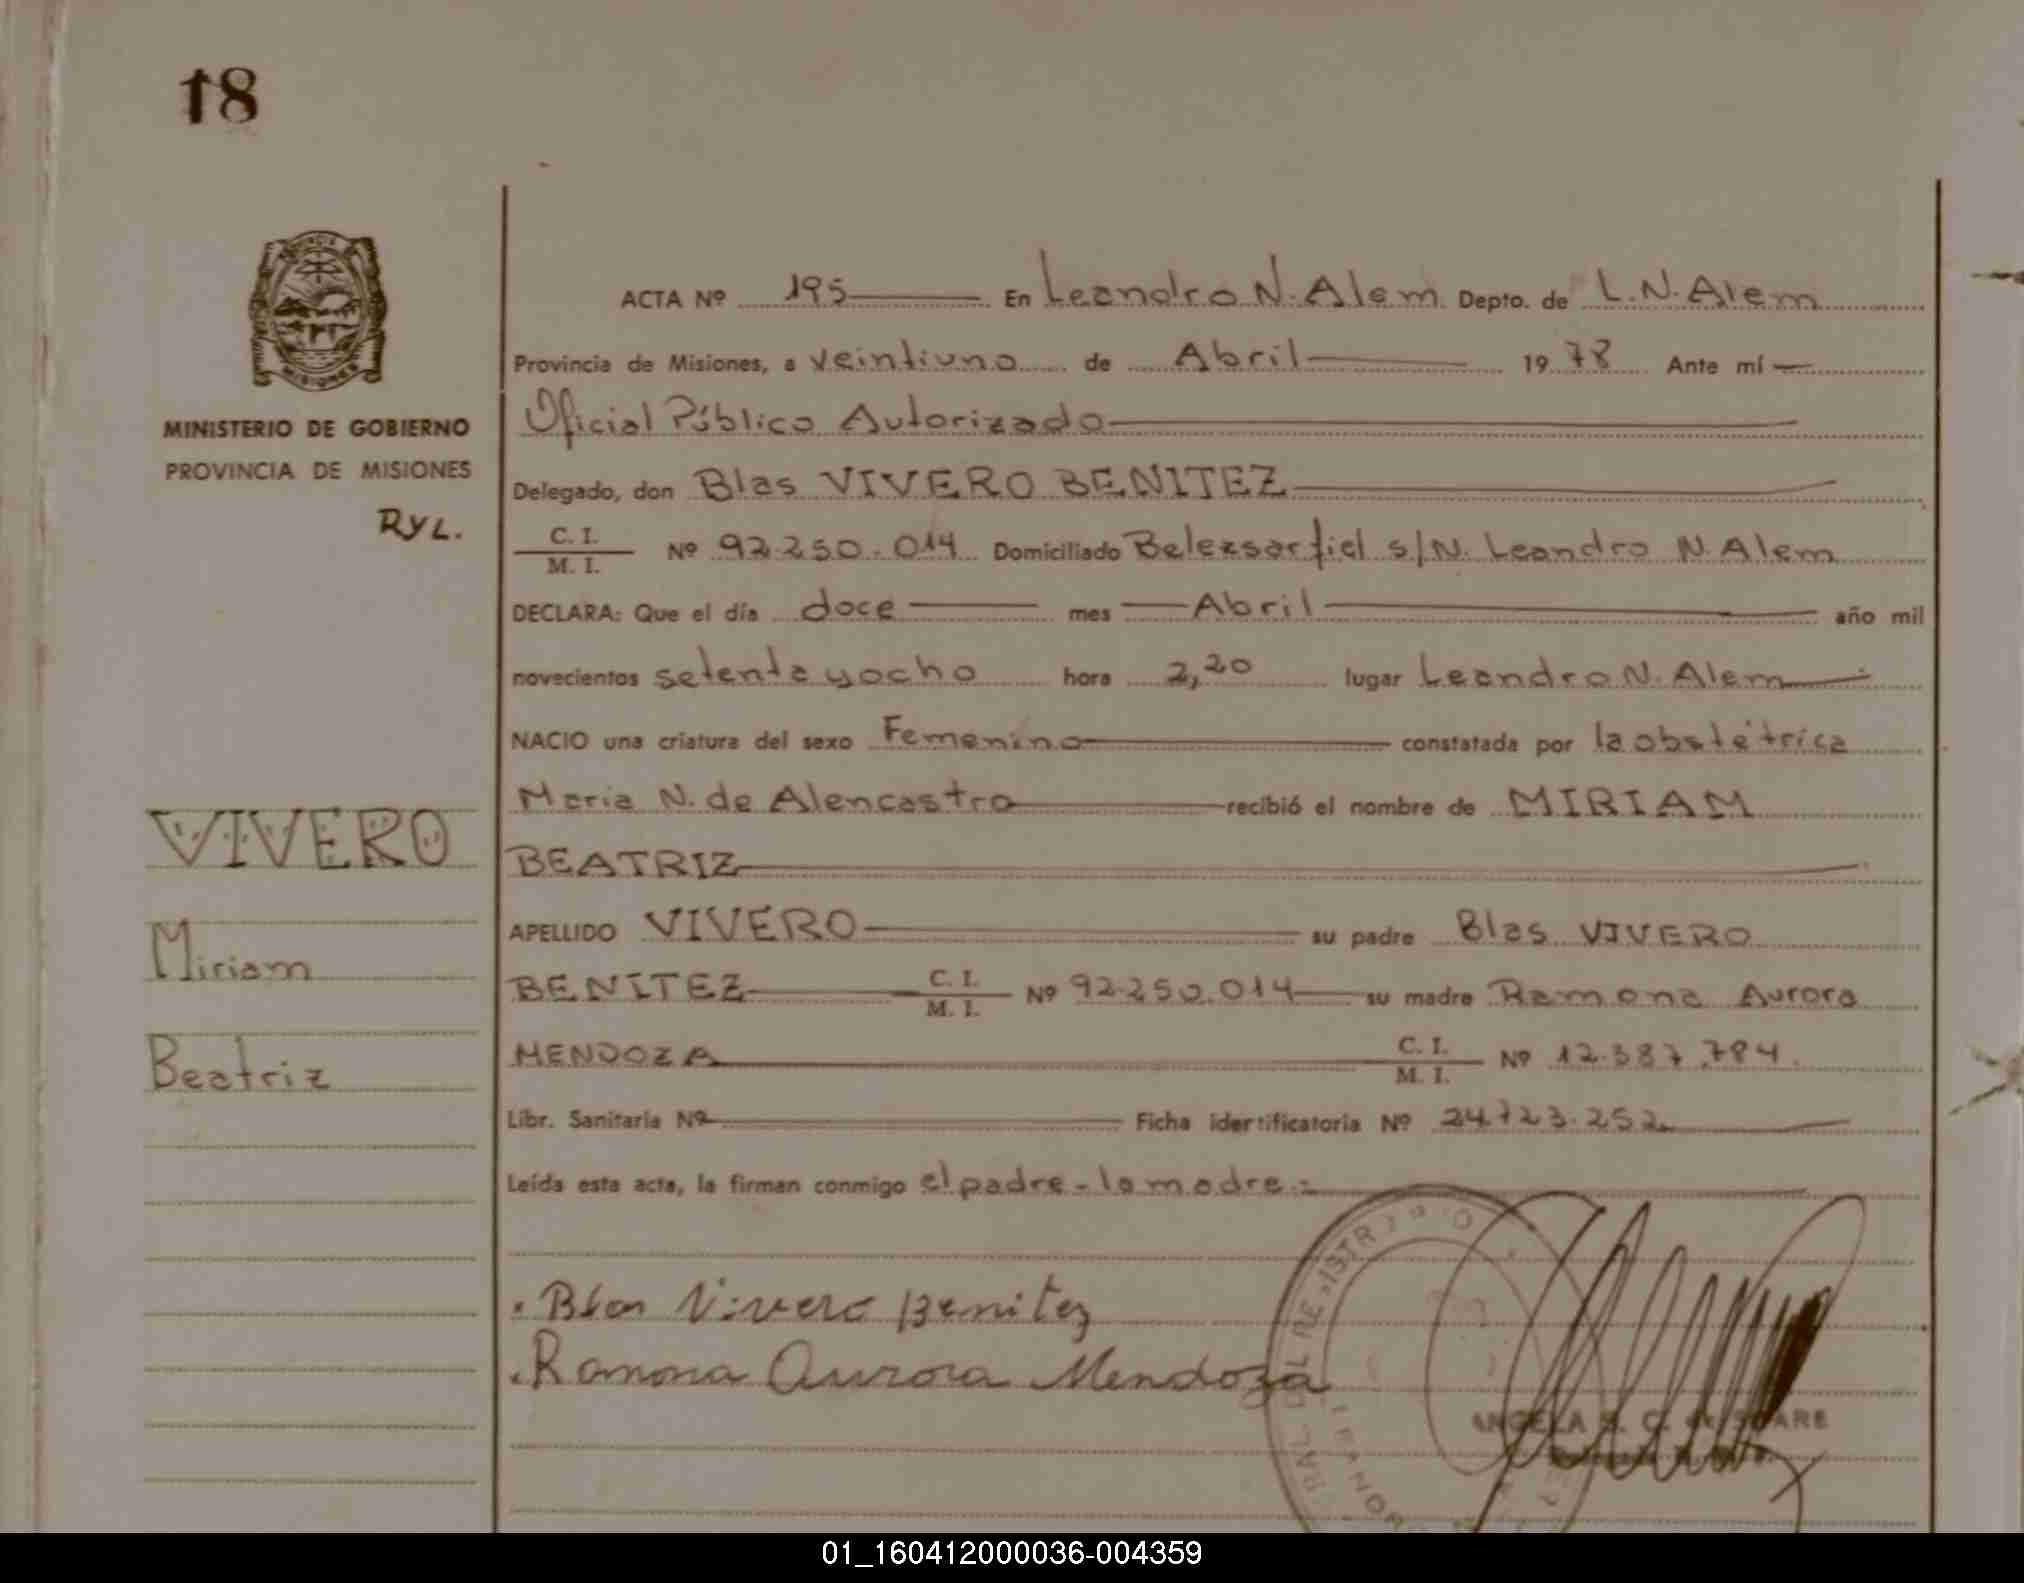 18
MINISTERIO DE GOBIERNO
PROVINCIA DE MISIONES
RYL.
VIVERO
Miriam
Beatriz
ACTA Nº 195 En Leandro N. Alem Depto. de L.N. Alem
Provincia de Misiones, a veintiuno de Abril 1978 Ante mí
Oficial Público Autorizado
Delegado, don Blas VIVERO BENITEZ
C. I. / M. I. Nº 92.250.014 Domiciliado Belezsarfiel s/N. Leandro N. Alem
DECLARA: Que el día doce mes Abril año mil
novecientos setenta y ocho hora 2,20 lugar Leandro N. Alem
NACIO una criatura del sexo Femenino constatada por la obstétrica
Maria N. de Alencastro recibió el nombre de MIRIAM
BEATRIZ
APELLIDO VIVERO su padre Blas VIVERO
BENITEZ C. I. / M. I. Nº 92.250.014 su madre Ramona Aurora
MENDOZA C. I. / M. I. Nº 12.387.784.
Libr. Sanitaria Nº Ficha identificatoria Nº 24.723.252
Leída esta acta, la firman conmigo el padre - la madre.-
Blas Vivero Benitez
Ramona Aurora Mendoza
ANGELA
01_160412000036-004359